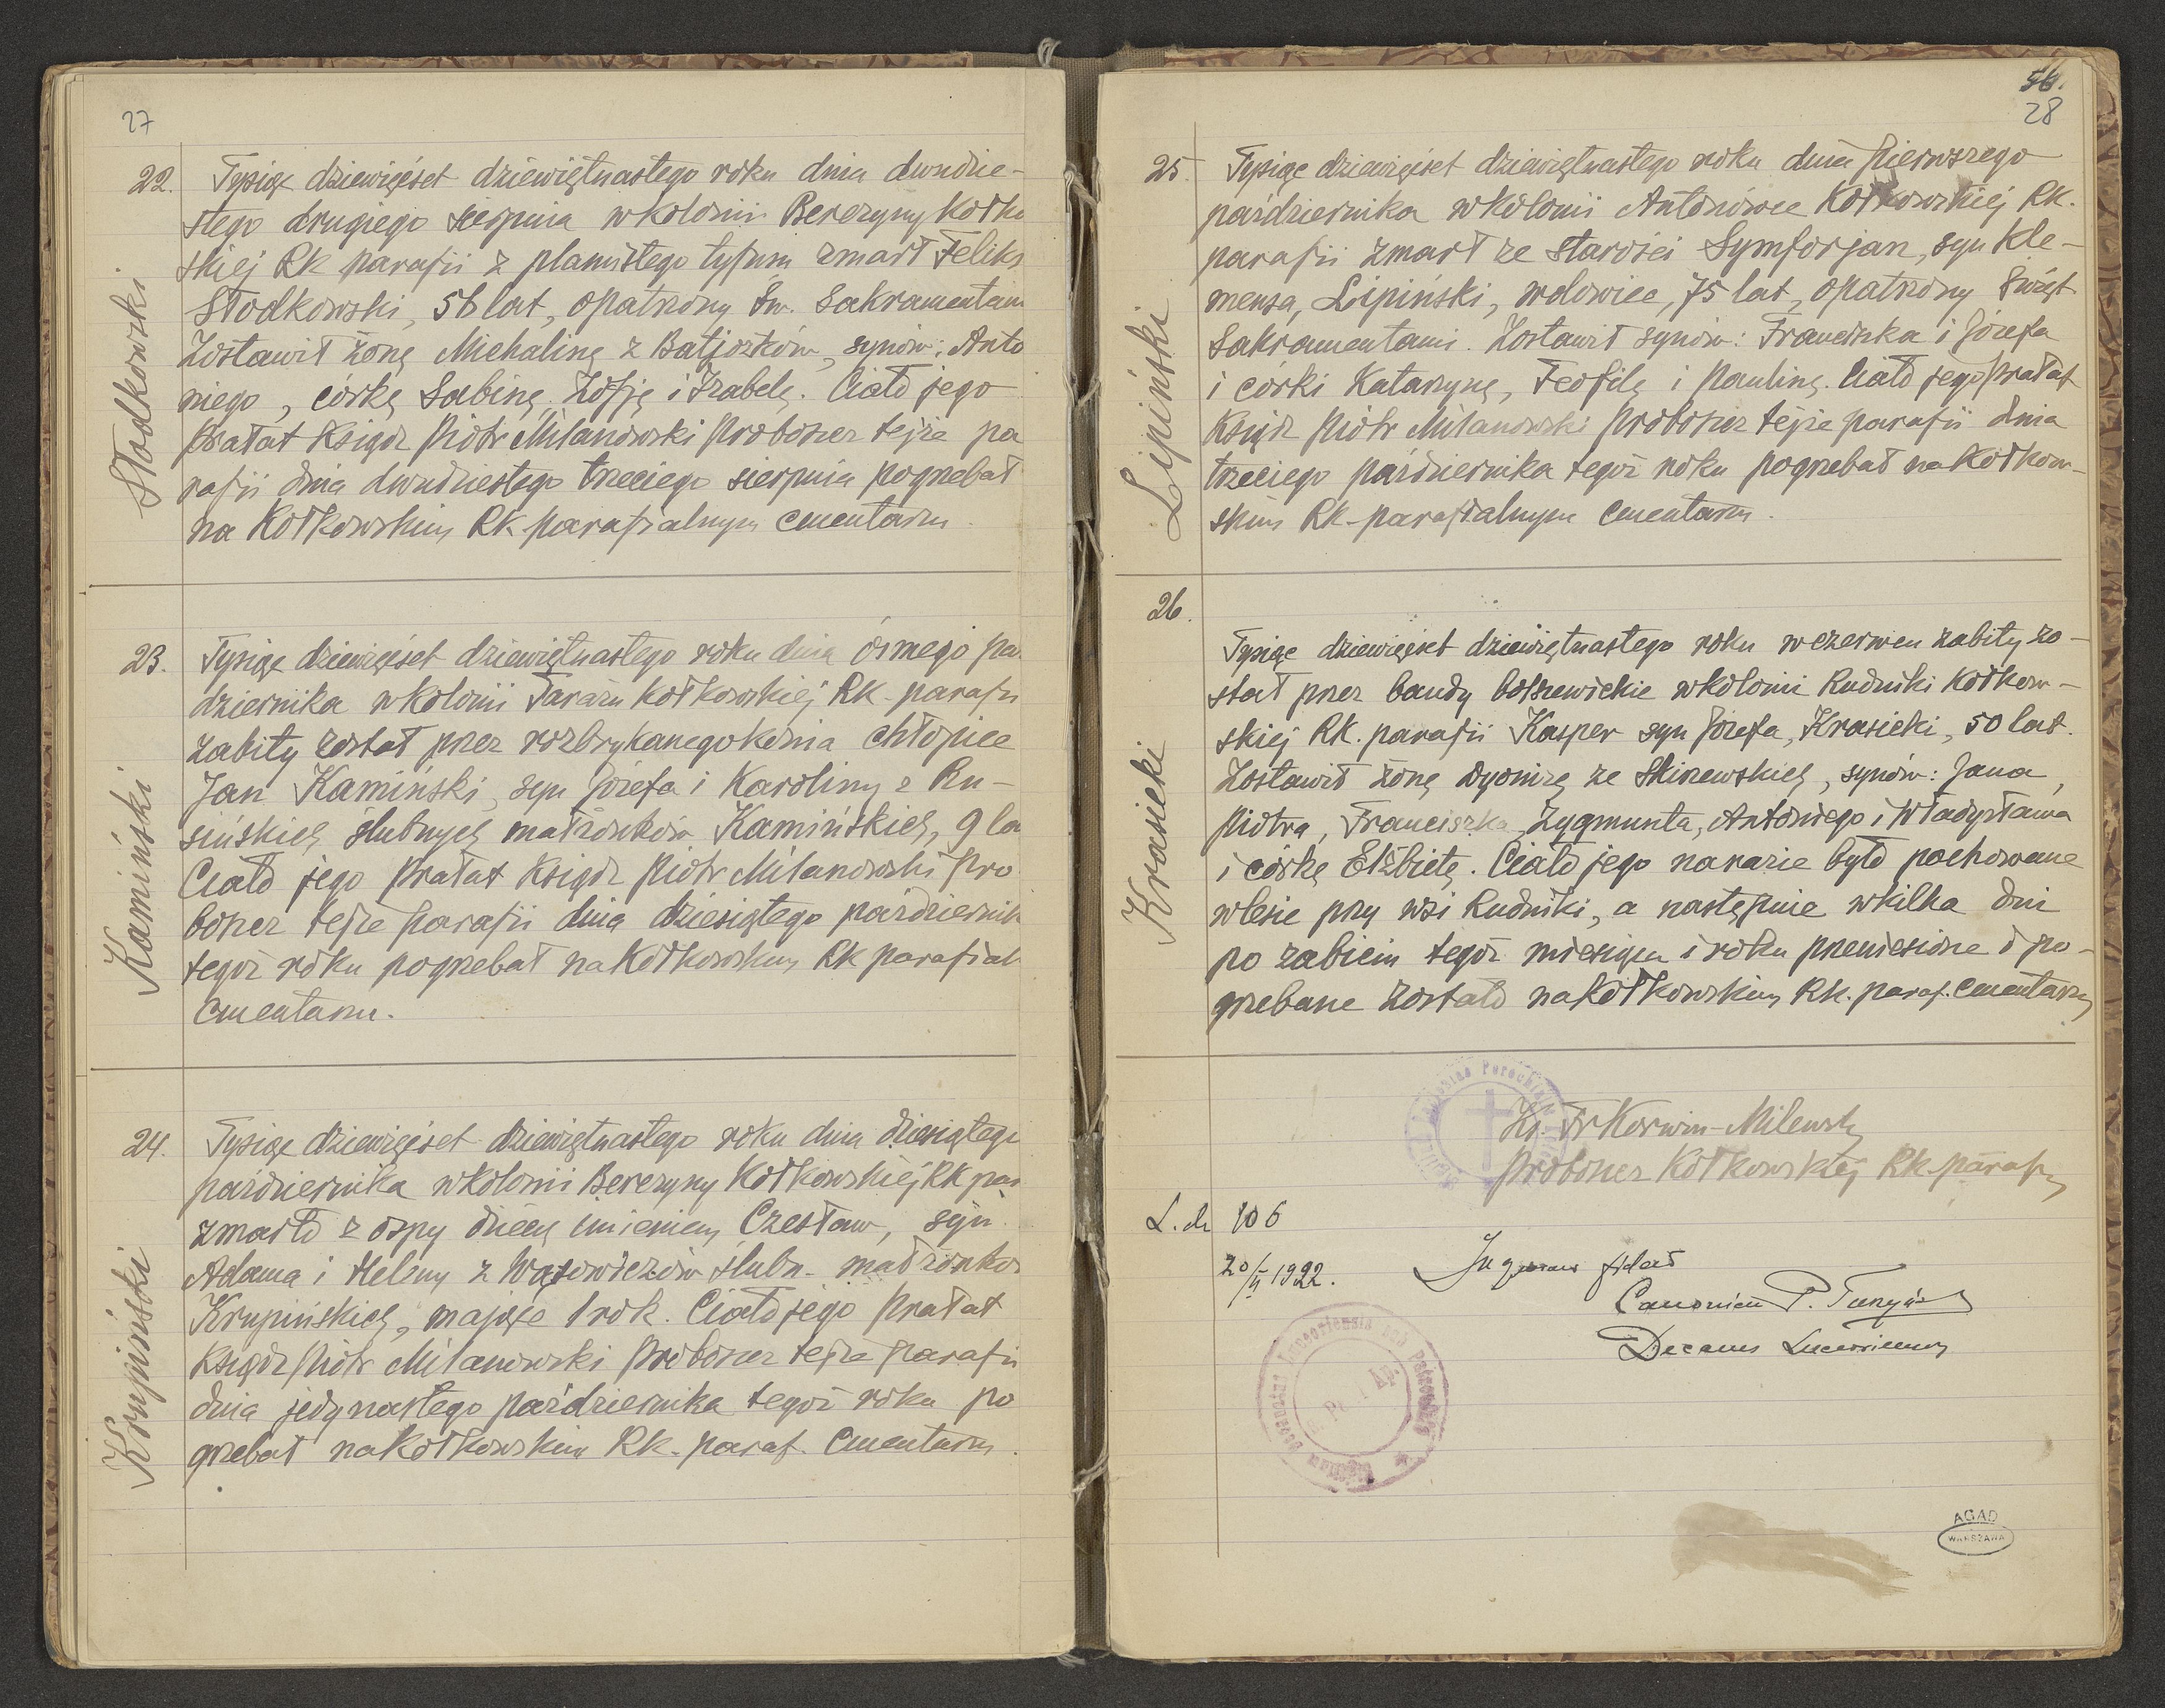 27
22.
Słodkowski
Tysiąc dziewięćset dziewiętnastego roku dnia dwudzie-
stego drugiego sierpnia w kolonii Berezyny Kołko
skiej RK parafii z plamistego tyfusu zmarł Feliks
Słodkowski, 56 lat, opatrzony Św. Sakramentam
Zostawił żonę Michalinę z Batjozków, synów: Anto
niego, córkę Sabinę, Zofję i Izabelę. Ciało jego
Prałat Ksiądz Piotr Milanowski Proboszcz tejże pa
rafii dnia dwudziestego trzeciego sierpnia pogrzebał
na Kołkowskim RK parafialnym cmentarzu.
23.
Kamiński
Tysiąc dziewięćset dziewiętnastego roku dnia ósmego pa
dziernika w kolonii Tarażu Kołkowskiej RK-parafii
zabity został przez rozbrykanego konia chłopiec
Jan Kamiński, syn Józefa i Karoliny z Ru-
sińskich ślubnych małżonków Kamińskich, 9 la
Ciało jego Prałat Ksiądz Piotr Milanowski Pro
boszcz tejże parafii dnia dziesiątego październik
tegoż roku pogrzebał na Kołkowskim RK parafial
cmentarzu.
24.
Krupiński
Tysiąc dziewięćset dziewiętnastego roku dnia dziesiątego
października w kolonii Berezyny Kołkowskiej RK par
zmarło z ospy dziecię imieniem Czesław, syn
Adama i Heleny z Wąsowiczów ślubn. małżonko
Krupińskich, mające 1 rok. Ciało jego Prałat
Ksiądz Piotr Milanowski Proboszcz tejże parafii
dnia jedynastego października tegoż roku po
grzebał na Kołkowskim RK. paraf. Cmentarzu.
56.
28
25.
Lipiński
Tysiąc dziewięćset dziewiętnastego roku dnia pierwszego
października w kolonii Antonówce Kołkowskiej RK.
parafii zmarł ze starości Symforjan, syn Kle-
mensa, Lipiński, wdowiec, 75 lat, opatrzony Święt.
Sakramentami. Zostawił synów: Franciszka i Józefa
i córki Katarzynę, Teofilę i Paulinę. Ciało jego Prałat
Ksiądz Piotr Milanowski Proboszcz tejże parafii dnia
trzeciego października tegoż roku pogrzebał na Kołkow-
skim RK-parafialnym Cmentarzu.
26.
Krasicki
Tysiąc dziewięćset dziewiętnastego roku w czerwcu zabity zo-
stał przez bandy bolszewickie w kolonii Rudniki Kołkow-
skiej RK. parafii Kasper syn Józefa, Krasicki, 50 lat.
Zostawił żonę Dyonizę ze Skirzewskich, synów: Jana,
Piotra, Franciszka, Zygmunta, Antoniego i Władysława
i córkę Elżbietę. Ciało jego narazie było pochowane
w lesie przy wsi Rudniki, a następnie w kilka dni
po zabiciu tegoż miesiąca i roku przeniesione i po-
grzebane zostało na Kołkowskim RK. paraf. cmentarzu
Ks. Fr Korwin-Milewski
Proboszcz Kołkowskiej RK-parafii
L. dz 106
20/II 1922.
Canonicus P.
Decanus Luceoriensis
AGAD
WARSZAWA